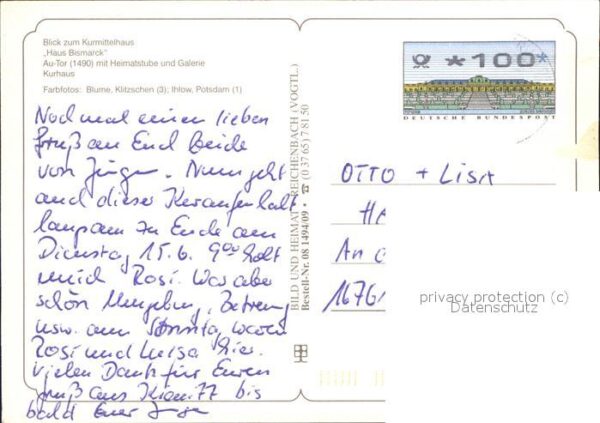 Blick zum Kurmittelhaus
„Haus Bismarck"
Au-Tor (1490) mit Heimatstube und Galerie
Kurhaus
Farbfotos: Blume, Klitzschen (3); Ihlow, Potsdam (1)
Noch mal einen lieben
Gruß an Euch Beide
von Jürgen. Nun geht
auch dieser Kuraufenthalt
langsam zu Ende am
Dienstag 15.6. 9°° holt
mich Rosi. War aber
schön Umgebung, Betreuung
usw. am Sonntag waren
Rosi und Luisa hier.
Vielen Dank für Euren
Gruß aus bis
bald Euer Jürgen
BILD UND HEIMAT REICHENBACH (VOGTL.)
Bestell-Nr. 08 1494/09 · ☎ (0 37 65) 7 81 50
*100*
DEUTSCHE BUNDESPOST
OTTO + LISA
HA
An
1676
privacy protection (c)
Datenschutz